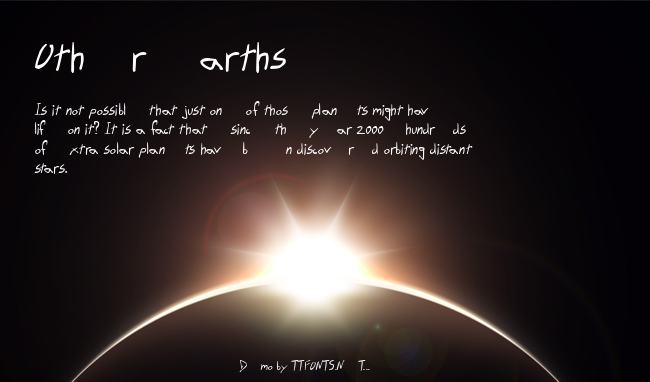 Oth r arths
Is it not possibl that just on of thos plan ts might hav
lif on it? It is a fact that sinc th y ar 2000 hundr ds
of xtra solar plan ts hav b n discov r d orbiting distant
stars.
D mo by TTFONTS.N T...